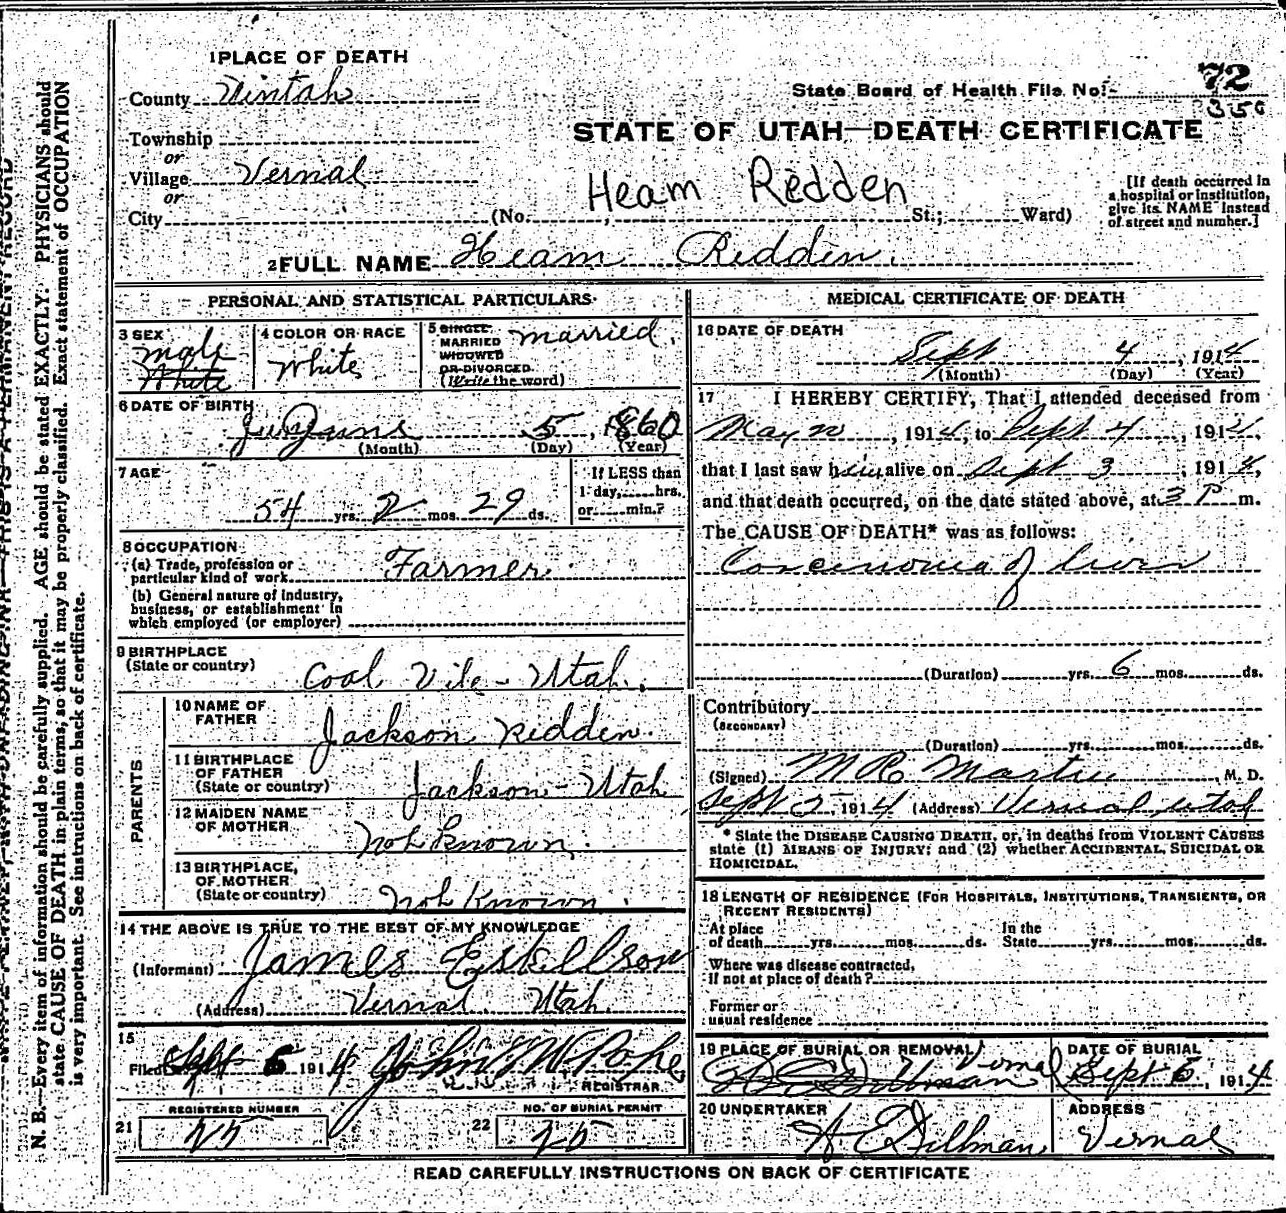 1 PLACE OF DEATH
County Uintah
Township
or
Village Vernal
or
City (No. , St.; Ward)
State Board of Health File No. 72
350
STATE OF UTAH—DEATH CERTIFICATE
Heam Redden
[If death occurred in
a hospital or institution,
give its NAME instead
of street and number.]
2 FULL NAME Heam Redden.
PERSONAL AND STATISTICAL PARTICULARS
3 SEX
Male
White
4 COLOR OR RACE
White
5 SINGLE
MARRIED
WIDOWED
OR DIVORCED
(Write the word)
married.
6 DATE OF BIRTH
June 5, 1860
(Month) (Day) (Year)
7 AGE
54 yrs. 2 mos. 29 ds.
If LESS than
1 day, hrs.
or min.?
8 OCCUPATION
(a) Trade, profession or
particular kind of work Farmer
(b) General nature of industry,
business, or establishment in
which employed (or employer)
9 BIRTHPLACE
(State or country)
Coal Vile - Utah.
PARENTS
10 NAME OF
FATHER
Jackson Redden.
11 BIRTHPLACE
OF FATHER
(State or country)
Jackson - Utah
12 MAIDEN NAME
OF MOTHER
Not Known.
13 BIRTHPLACE,
OF MOTHER
(State or country)
Not Known.
14 THE ABOVE IS TRUE TO THE BEST OF MY KNOWLEDGE
(Informant) James Eskellson
(Address) Vernal Utah
15
Filed Sept 5 1914 John W. Pope
REGISTRAR
21 REGISTERED NUMBER
25
22 NO. OF BURIAL PERMIT
25
MEDICAL CERTIFICATE OF DEATH
16 DATE OF DEATH
Sept 4, 1914
(Month) (Day) (Year)
17 I HEREBY CERTIFY, That I attended deceased from
May , 1914, to Sept 4, 1914,
that I last saw him alive on Sept 3, 1914,
and that death occurred, on the date stated above, at 3 P m.
The CAUSE OF DEATH* was as follows:
Carcinoma of liver
(Duration) yrs. 6 mos. ds.
Contributory
(SECONDARY)
(Duration) yrs. mos. ds.
(Signed) M R Martin, M. D.
Sept 5, 1914 (Address) Vernal Utah
* State the DISEASE CAUSING DEATH, or, in deaths from VIOLENT CAUSES
state (1) MEANS OF INJURY; and (2) whether ACCIDENTAL, SUICIDAL OR
HOMICIDAL.
18 LENGTH OF RESIDENCE (FOR HOSPITALS, INSTITUTIONS, TRANSIENTS, OR
RECENT RESIDENTS)
At place
of death yrs. mos. ds.
In the
State yrs. mos. ds.
Where was disease contracted,
if not at place of death?
Former or
usual residence
19 PLACE OF BURIAL OR REMOVAL
Vernal
Dillman
DATE OF BURIAL
Sept 5, 1914
20 UNDERTAKER
W E Dillman
ADDRESS
Vernal
READ CAREFULLY INSTRUCTIONS ON BACK OF CERTIFICATE
N. B.—Every item of information should be carefully supplied. AGE should be stated EXACTLY. PHYSICIANS should
state CAUSE OF DEATH in plain terms, so that it may be properly classified. Exact statement of OCCUPATION
is very important. See instructions on back of certificate.